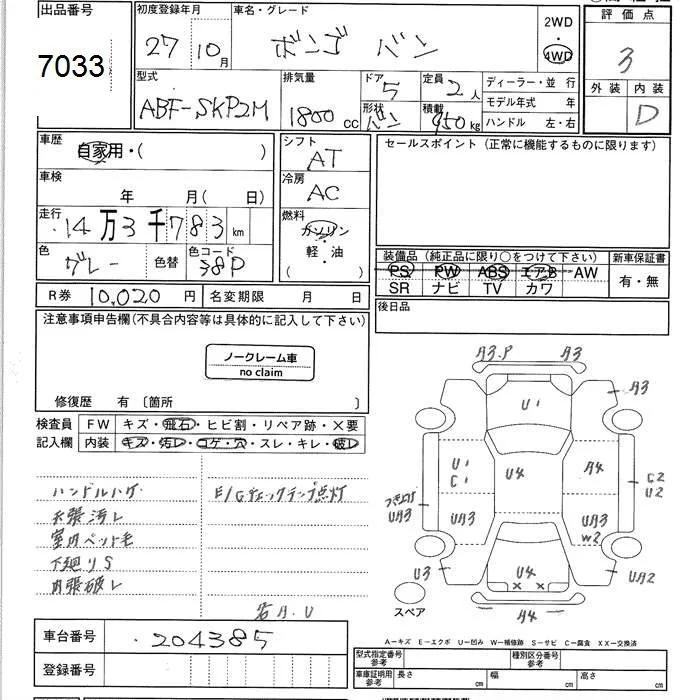 出品番号
7033
初度登録年月
27 10月
車名・グレード
ボンゴ バン
2WD
・
4WD
評価点
3
外装 内装
D
型式
ABF-SKP2M
排気量
1800 cc
ドア
5
形状
バン
定員
2人
積載
950 kg
ディーラー・並 行
モデル年式 年
ハンドル 左・右
車歴
自家用・( )
車検
年 月( 日)
走行
14万3千783 km
色
グレー
色替
色コード
38P
シフト
AT
冷房
AC
燃料
ガソリン
・
軽・油
( )
セールスポイント (正常に機能するものに限ります)
装備品 (純正品に限り○をつけて下さい)
PS PW ABS エアB AW
SR ナビ TV カワ
新車保証書
有・無
R券 10,020 円
名変期限 月 日
後日品
注意事項申告欄(不具合内容等は具体的に記入して下さい)
ノークレーム車
no claim
修復歴 有 〔箇所 〕
検査員
記入欄
FW キズ・飛石・ヒビ割・リペア跡・×要
内装 キズ・汚レ・コゲ・穴・スレ・キレ・破レ
ハンドルハゲ
E/Gチェックランプ点灯
天張汚レ
室内ペット毛
下廻りS
内張破レ
A3.P A3
A3
U1
U1
C1
U4
A4
C2
U2
UA3
UA3
UA3
W2
U3
U4
UA2
× ×
A4
スペア
車台番号
204385
登録番号
A-キズ E-エクボ U-凹み W-補修跡 S-サビ C-腐食 XX-交換済
型式指定番号
参考
種別区分番号
参考
車庫証明用
参考
長さ cm
幅 cm
高さ cm